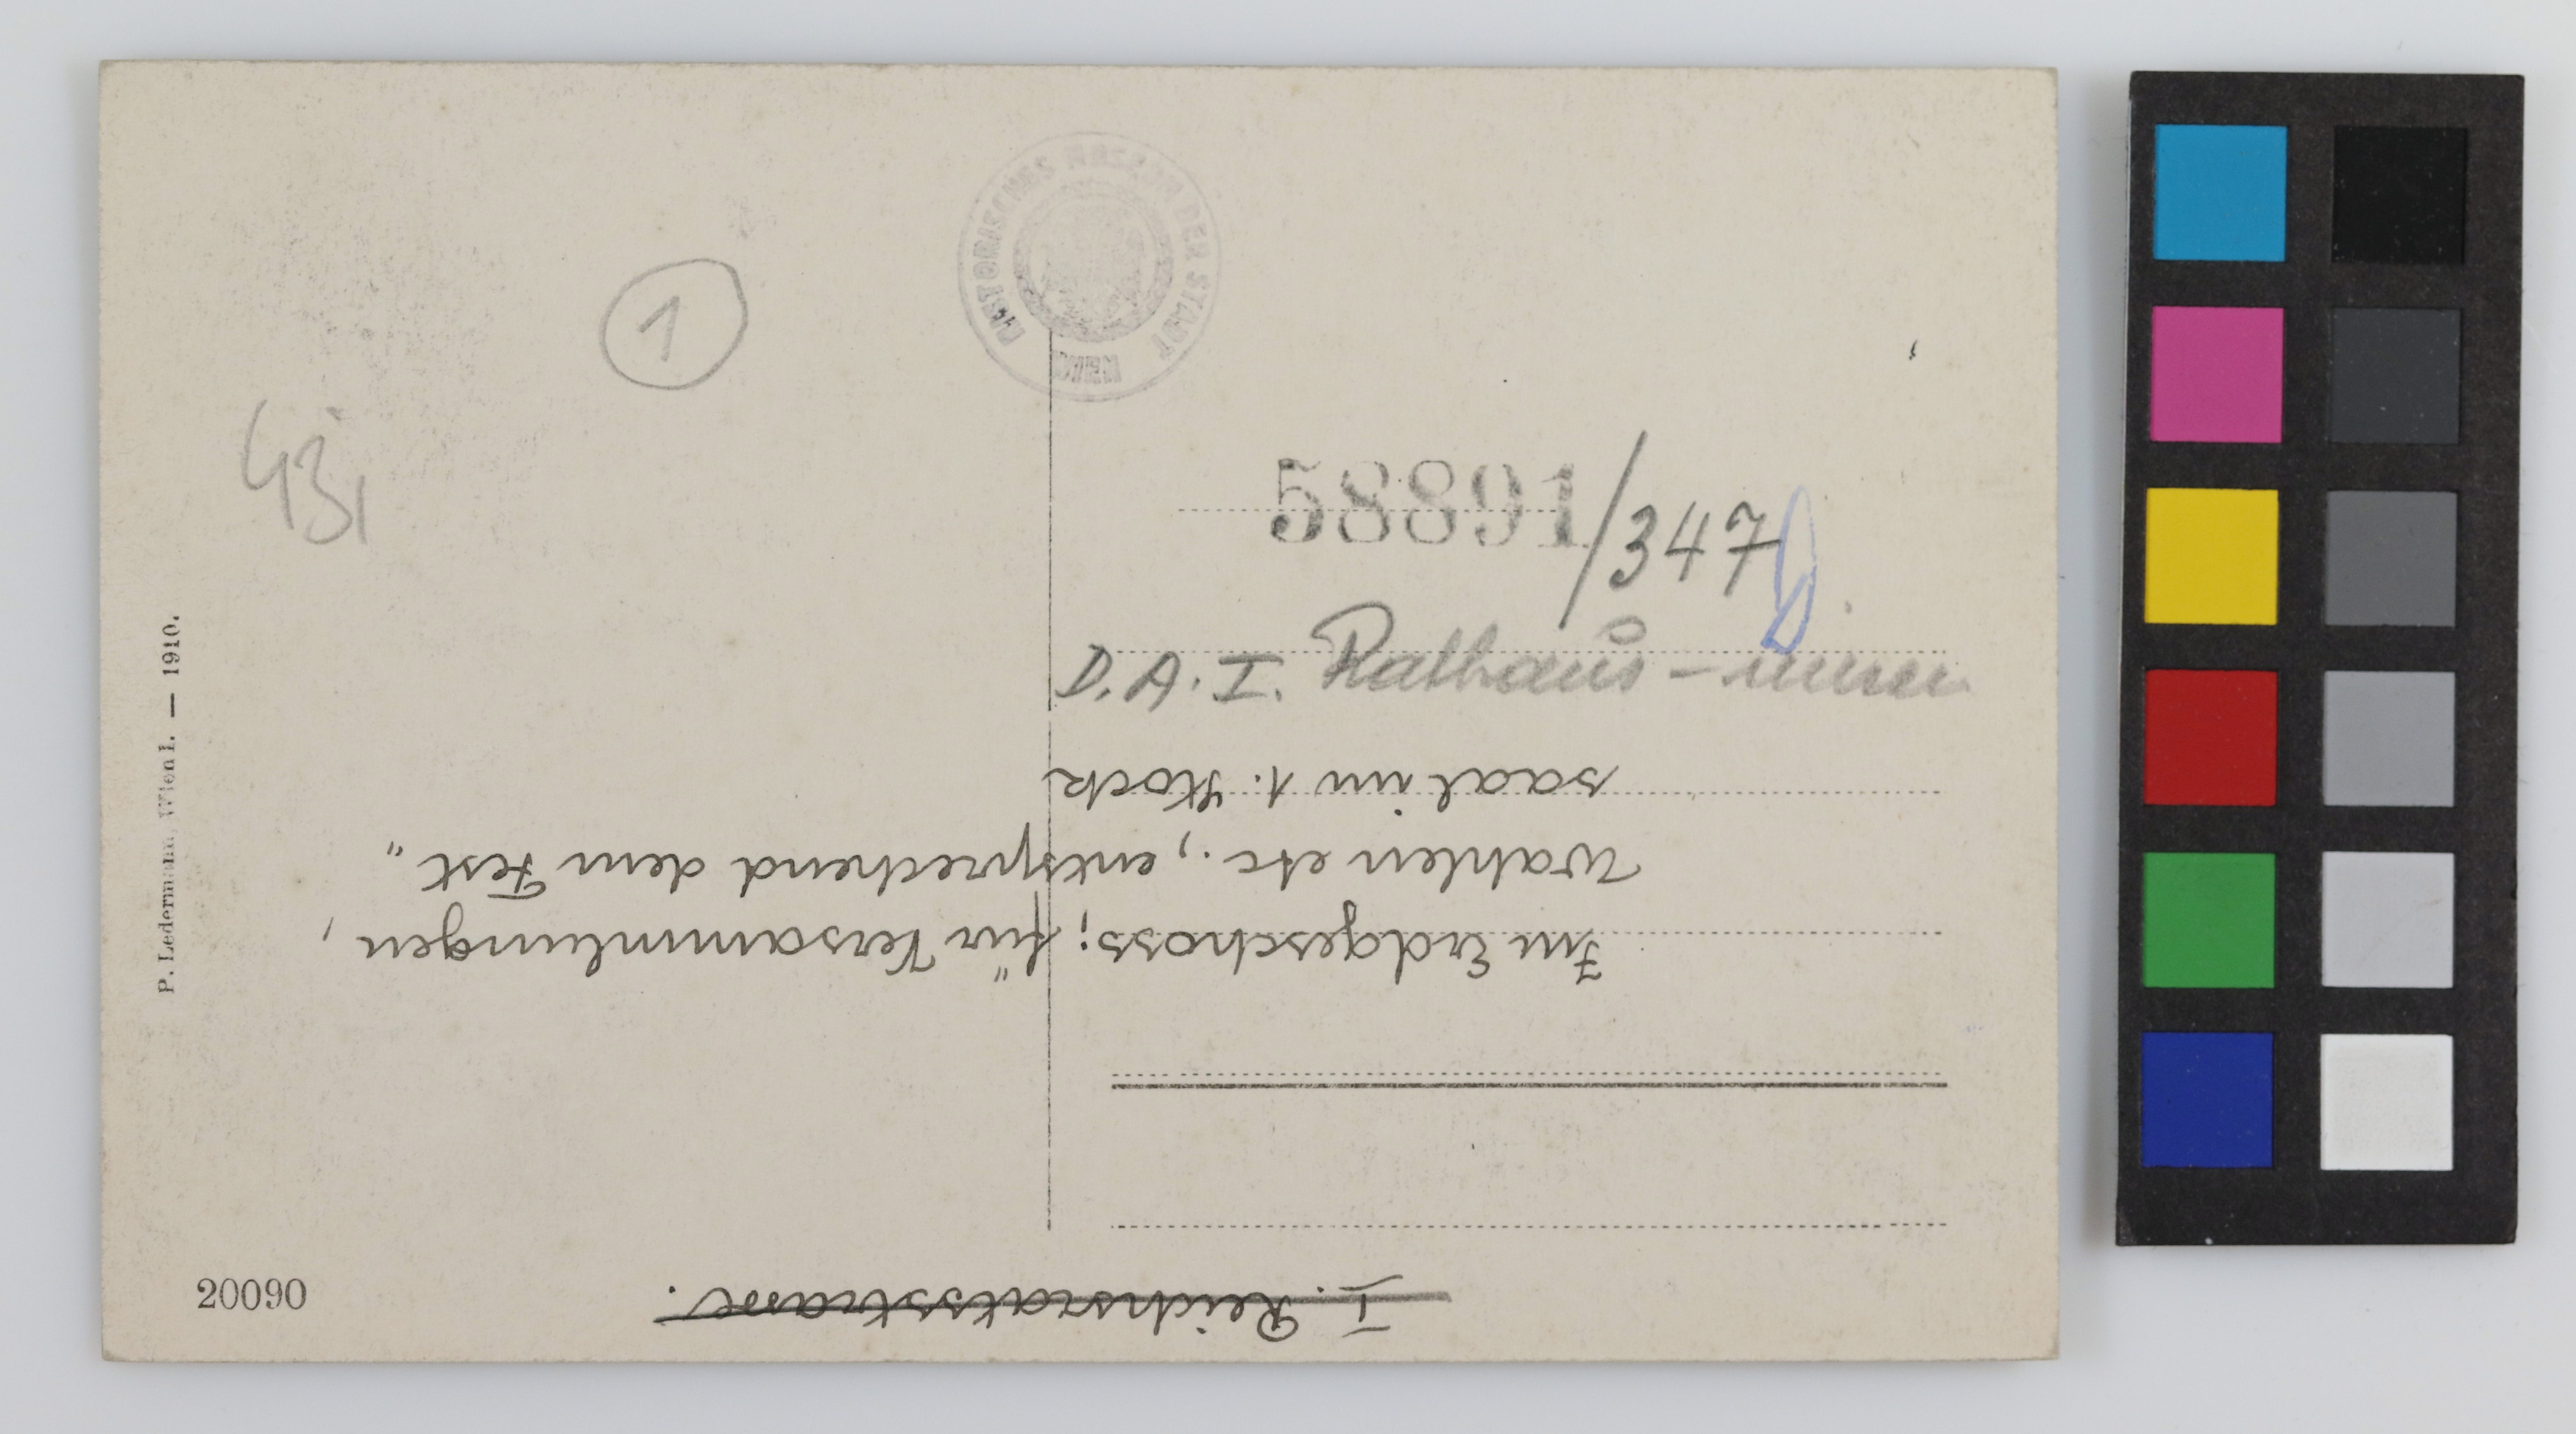 HISTORISCHES MUSEUM DER STADT WIEN
1
43,
58891/347
D. A. I. Rathaus - innen
P. Ledermann, Wien I. — 1910.
20090
I. Reichsratsstrasse.
Im Erdgeschoss; für Versammlungen,
Wahlen etc., entsprechend dem Fest "
saal im 1. Stock